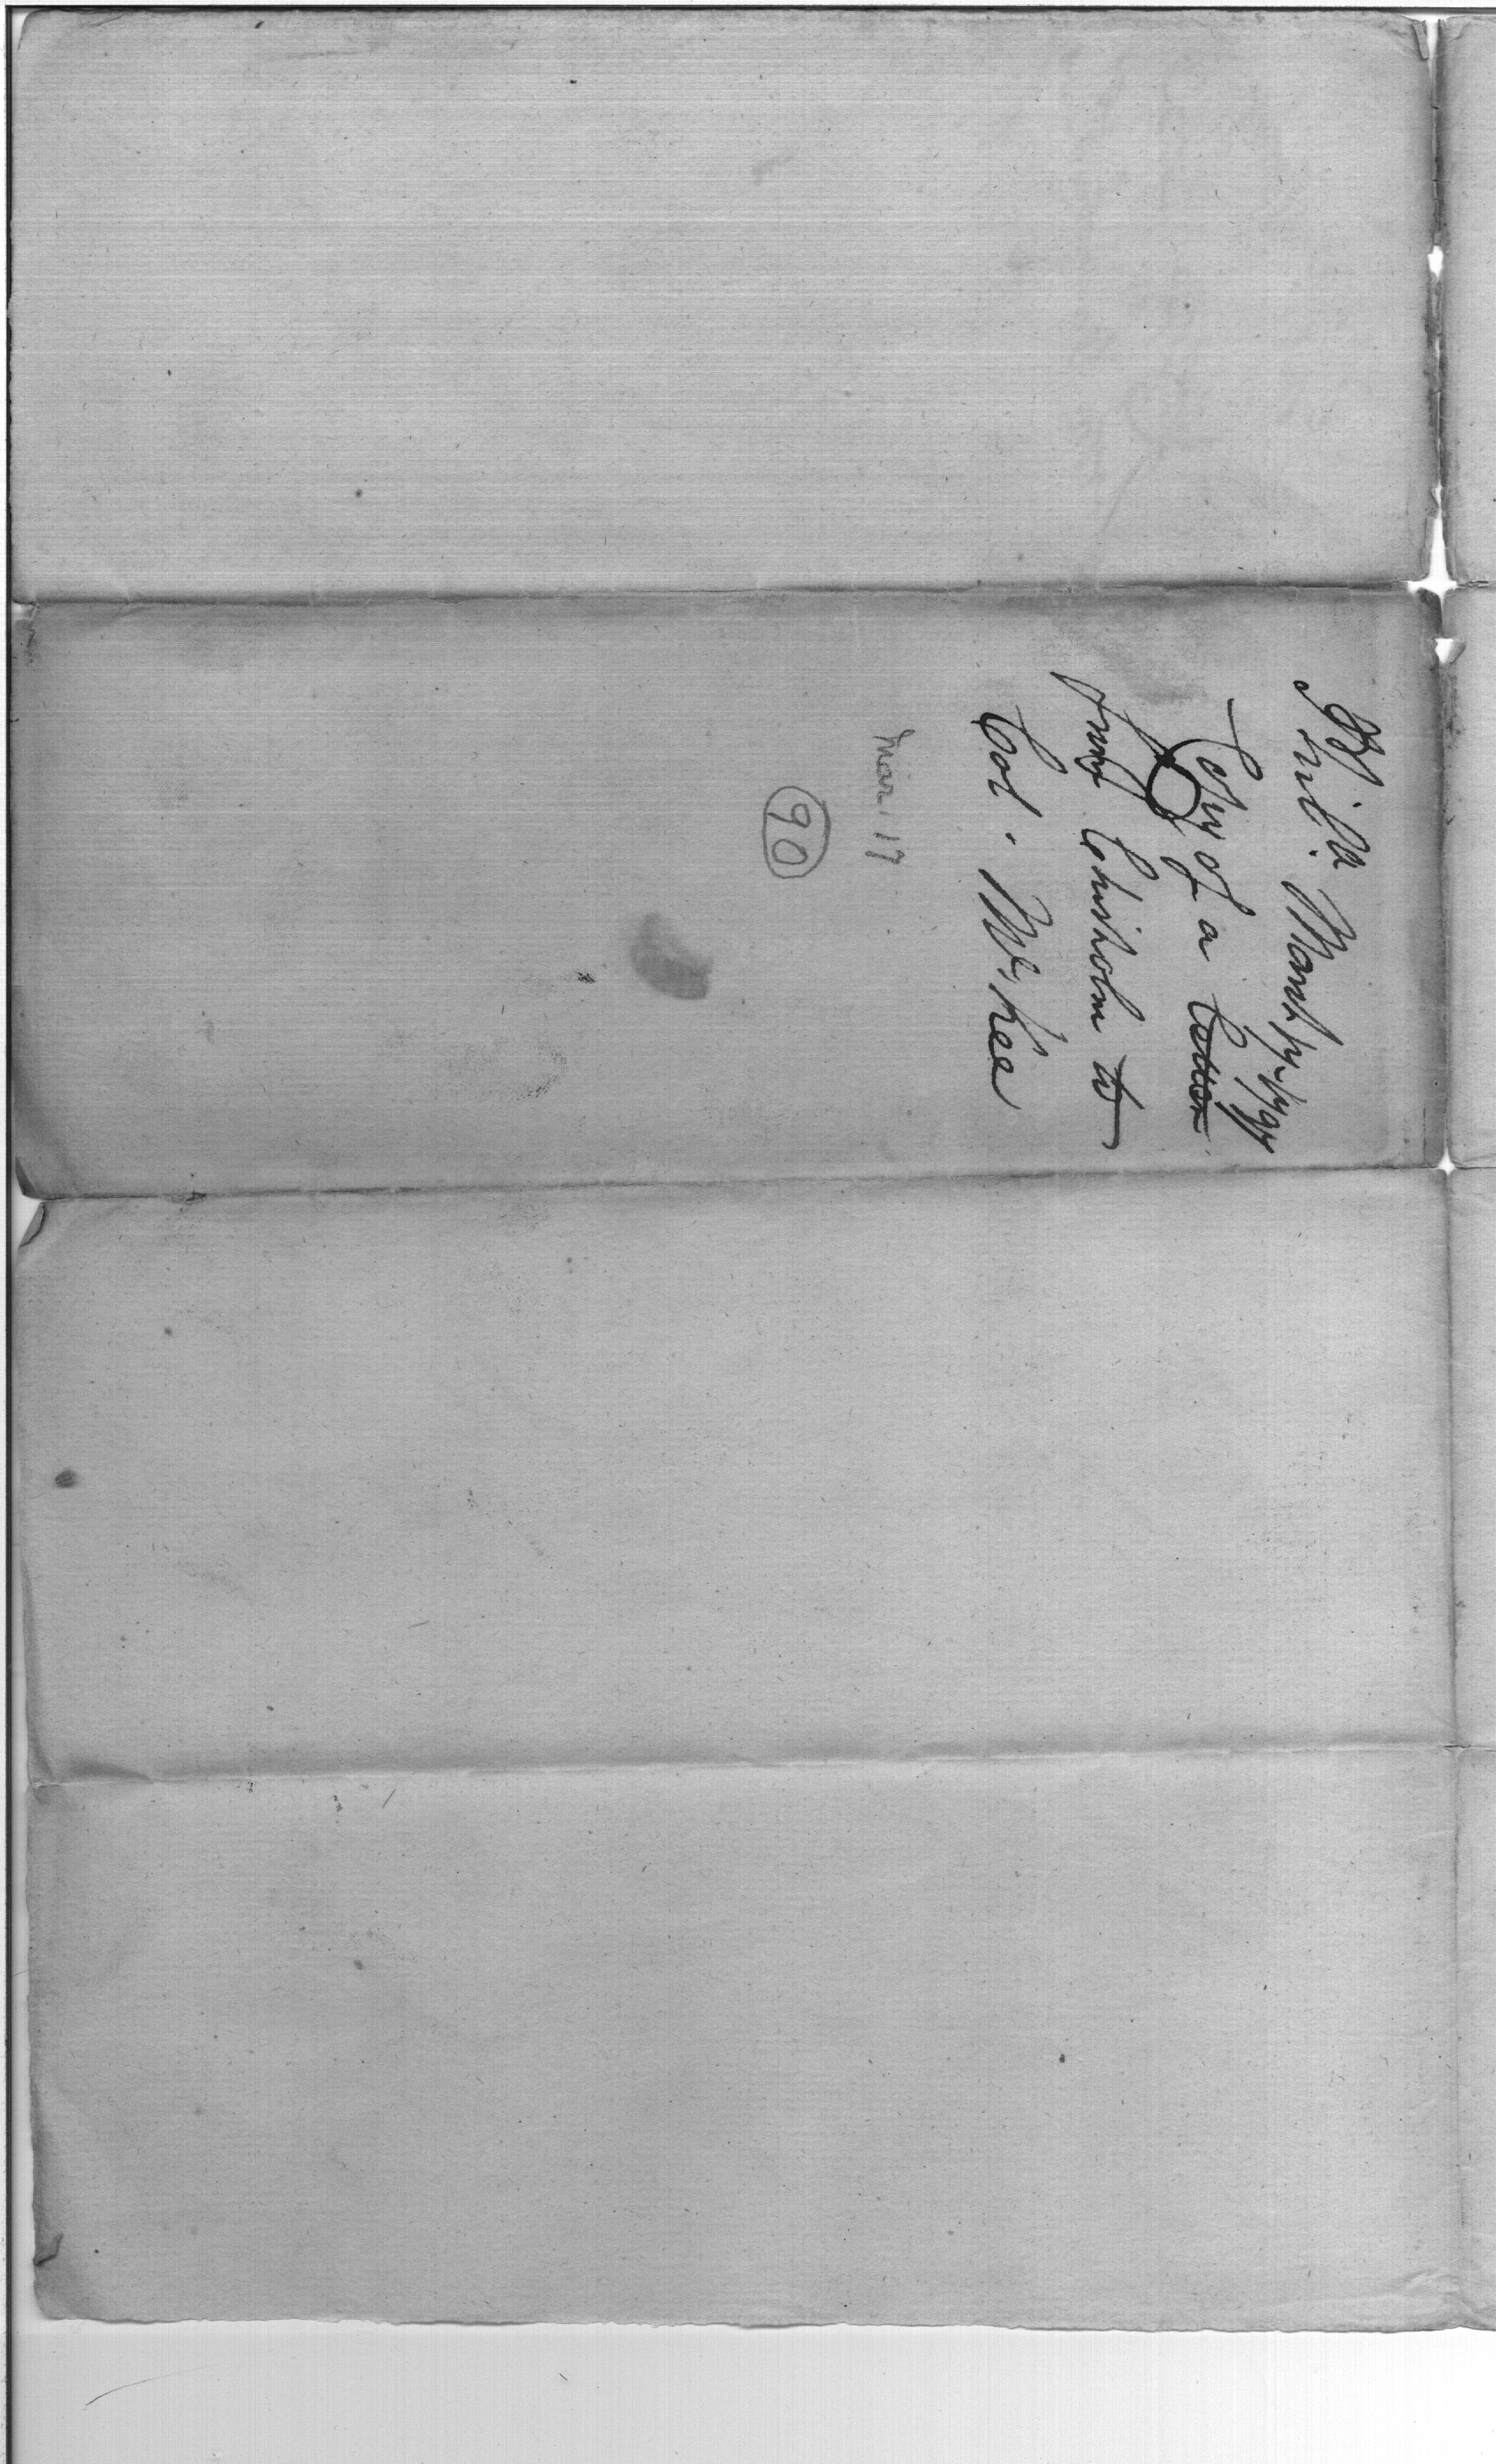 Phil.ª March 17. 1797
Copy of a Letter
from Chisholm to
Col. McKee
Mar. 17
90